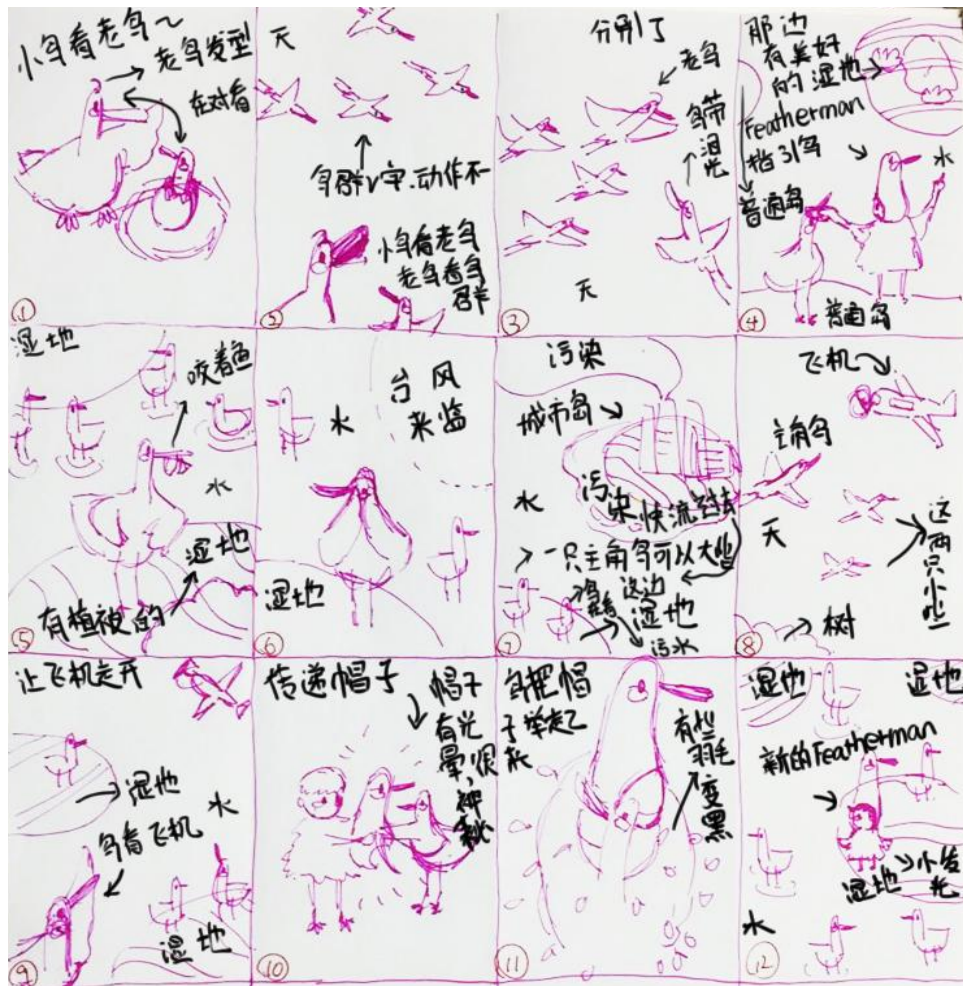 ①
小鸟看老鸟~
老鸟发型
在对看
②
天
鸟群V字,动作不一
小鸟看老鸟
老鸟看鸟
群
③
分别了
老鸟
鸟带
泪
光
天
④
那边
有美好
的湿地
Featherman
指引鸟
水
普通鸟
普通鸟
⑤
湿地
咬着鱼
水
湿地
有植被的
⑥
台风
来临
水
湿地
⑦
污染
城市岛
水
污
染快流过去
一只主角鸟可以大些
这边
湿地
污水
⑧
飞机
主角鸟
天
这两只小些
树
⑨
让飞机走开
湿地
水
鸟看飞机
湿地
⑩
传递帽子
帽子
有光
晕,很
神
秘
⑪
鸟把帽
子举起
来
有些
羽毛
变
黑
⑫
湿地
湿地
新的Featherman
湿地
小发
光
水